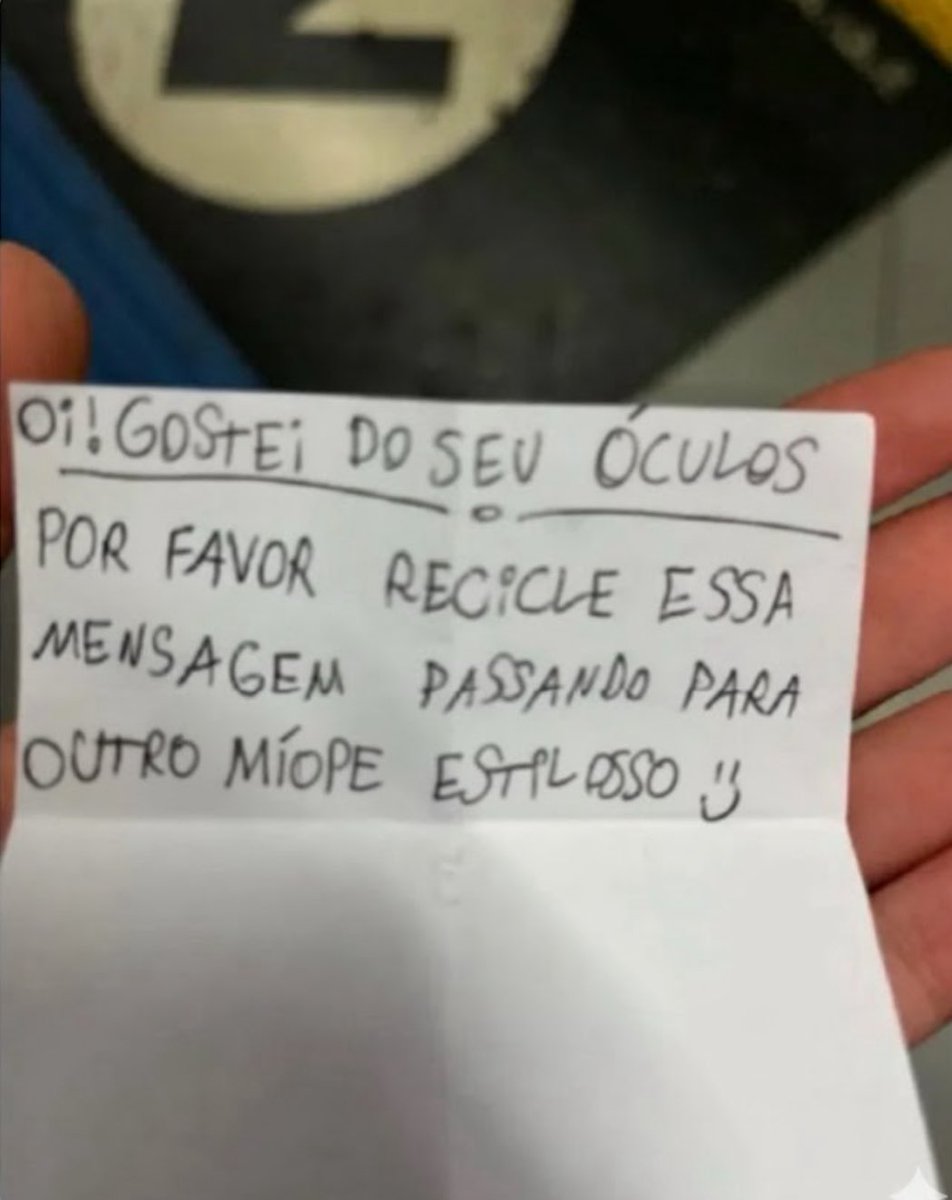 Oi! GOSTEI DO SEU ÓCULOS
POR FAVOR RECICLE ESSA
MENSAGEM PASSANDO PARA
OUTRO MÍOPE ESTILOSSO